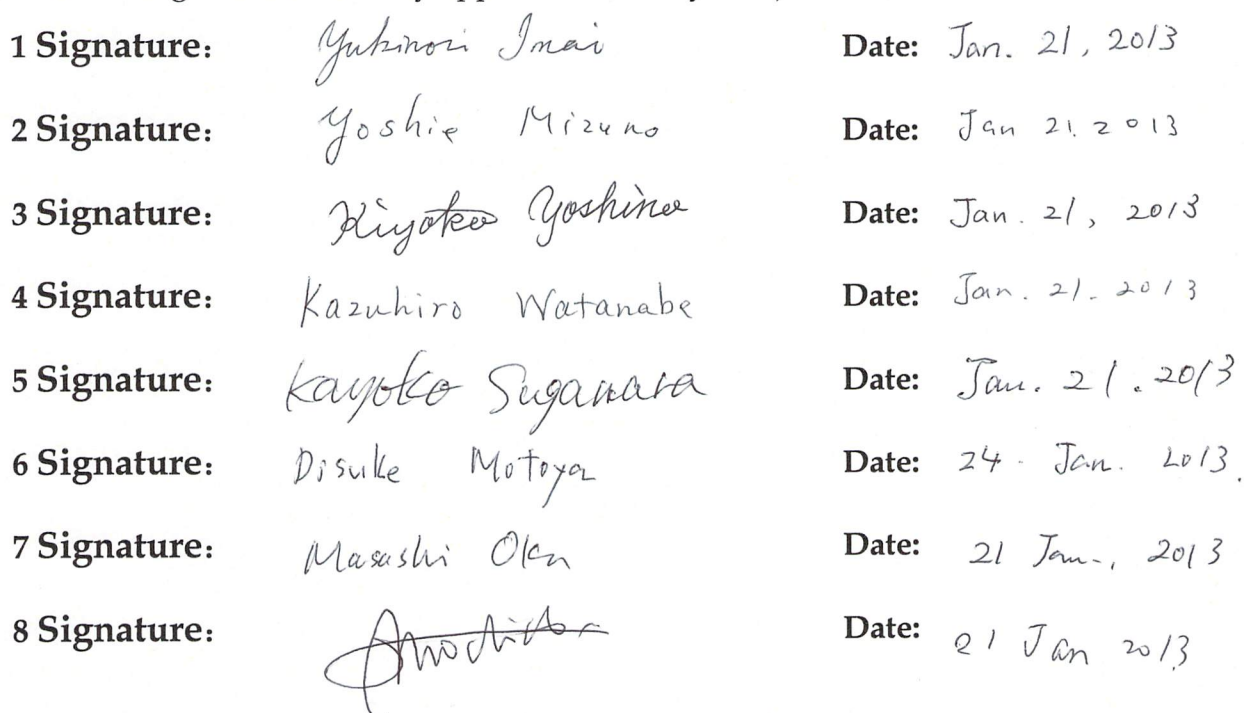 1 Signature: Yukinori Imai Date: Jan. 21, 2013
2 Signature: Yoshie Mizuno Date: Jan 21. 2013
3 Signature: Kiyoko Yoshino Date: Jan. 21, 2013
4 Signature: Kazuhiro Watanabe Date: Jan. 21. 2013
5 Signature: Kayoko Sugawara Date: Jan. 21. 2013
6 Signature: Disuke Motoya Date: 24. Jan. 2013.
7 Signature: Masashi Oka Date: 21 Jan., 2013
8 Signature: Date: 21 Jan 2013